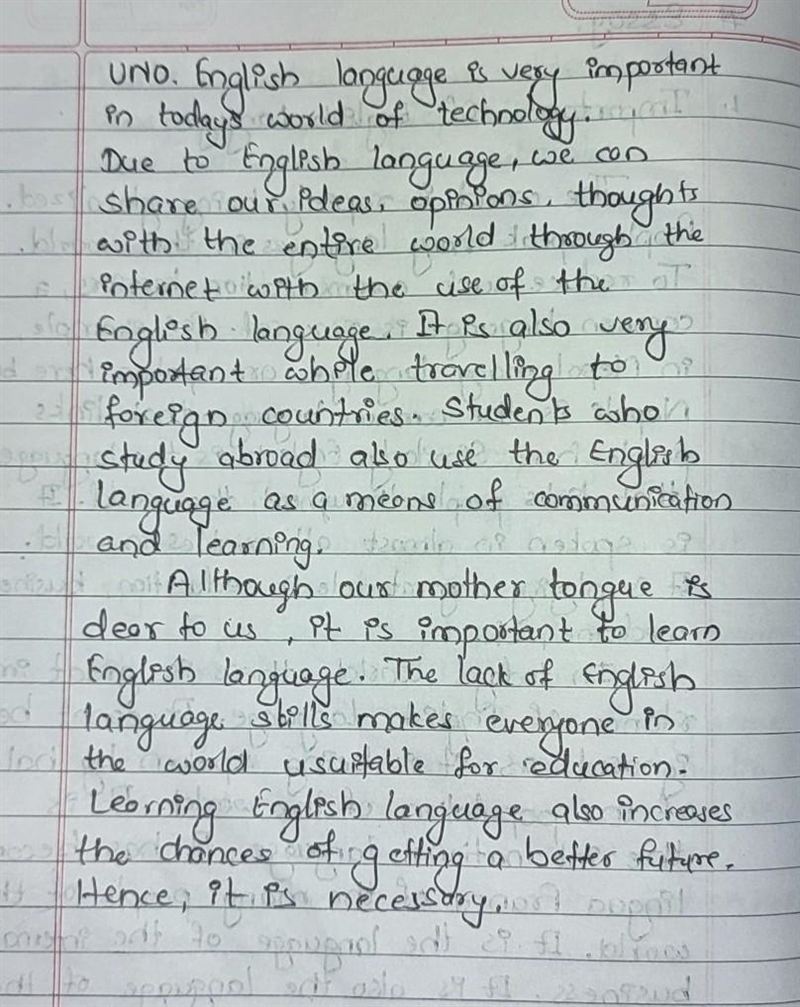 UNO. English language is very important
in today's world of technology.
Due to English language, we can
share our ideas, opinions, thoughts
with the entire world through the
internet with the use of the
English language. It is also very
important while travelling to
foreign countries. Students who
study abroad also use the English
language as a means of communication
and learning.
Although our mother tongue is
dear to us, it is important to learn
English language. The lack of English
language skills makes everyone in
the world usuitable for education.
Learning English language also increases
the chances of getting a better future.
Hence, it is necessary.